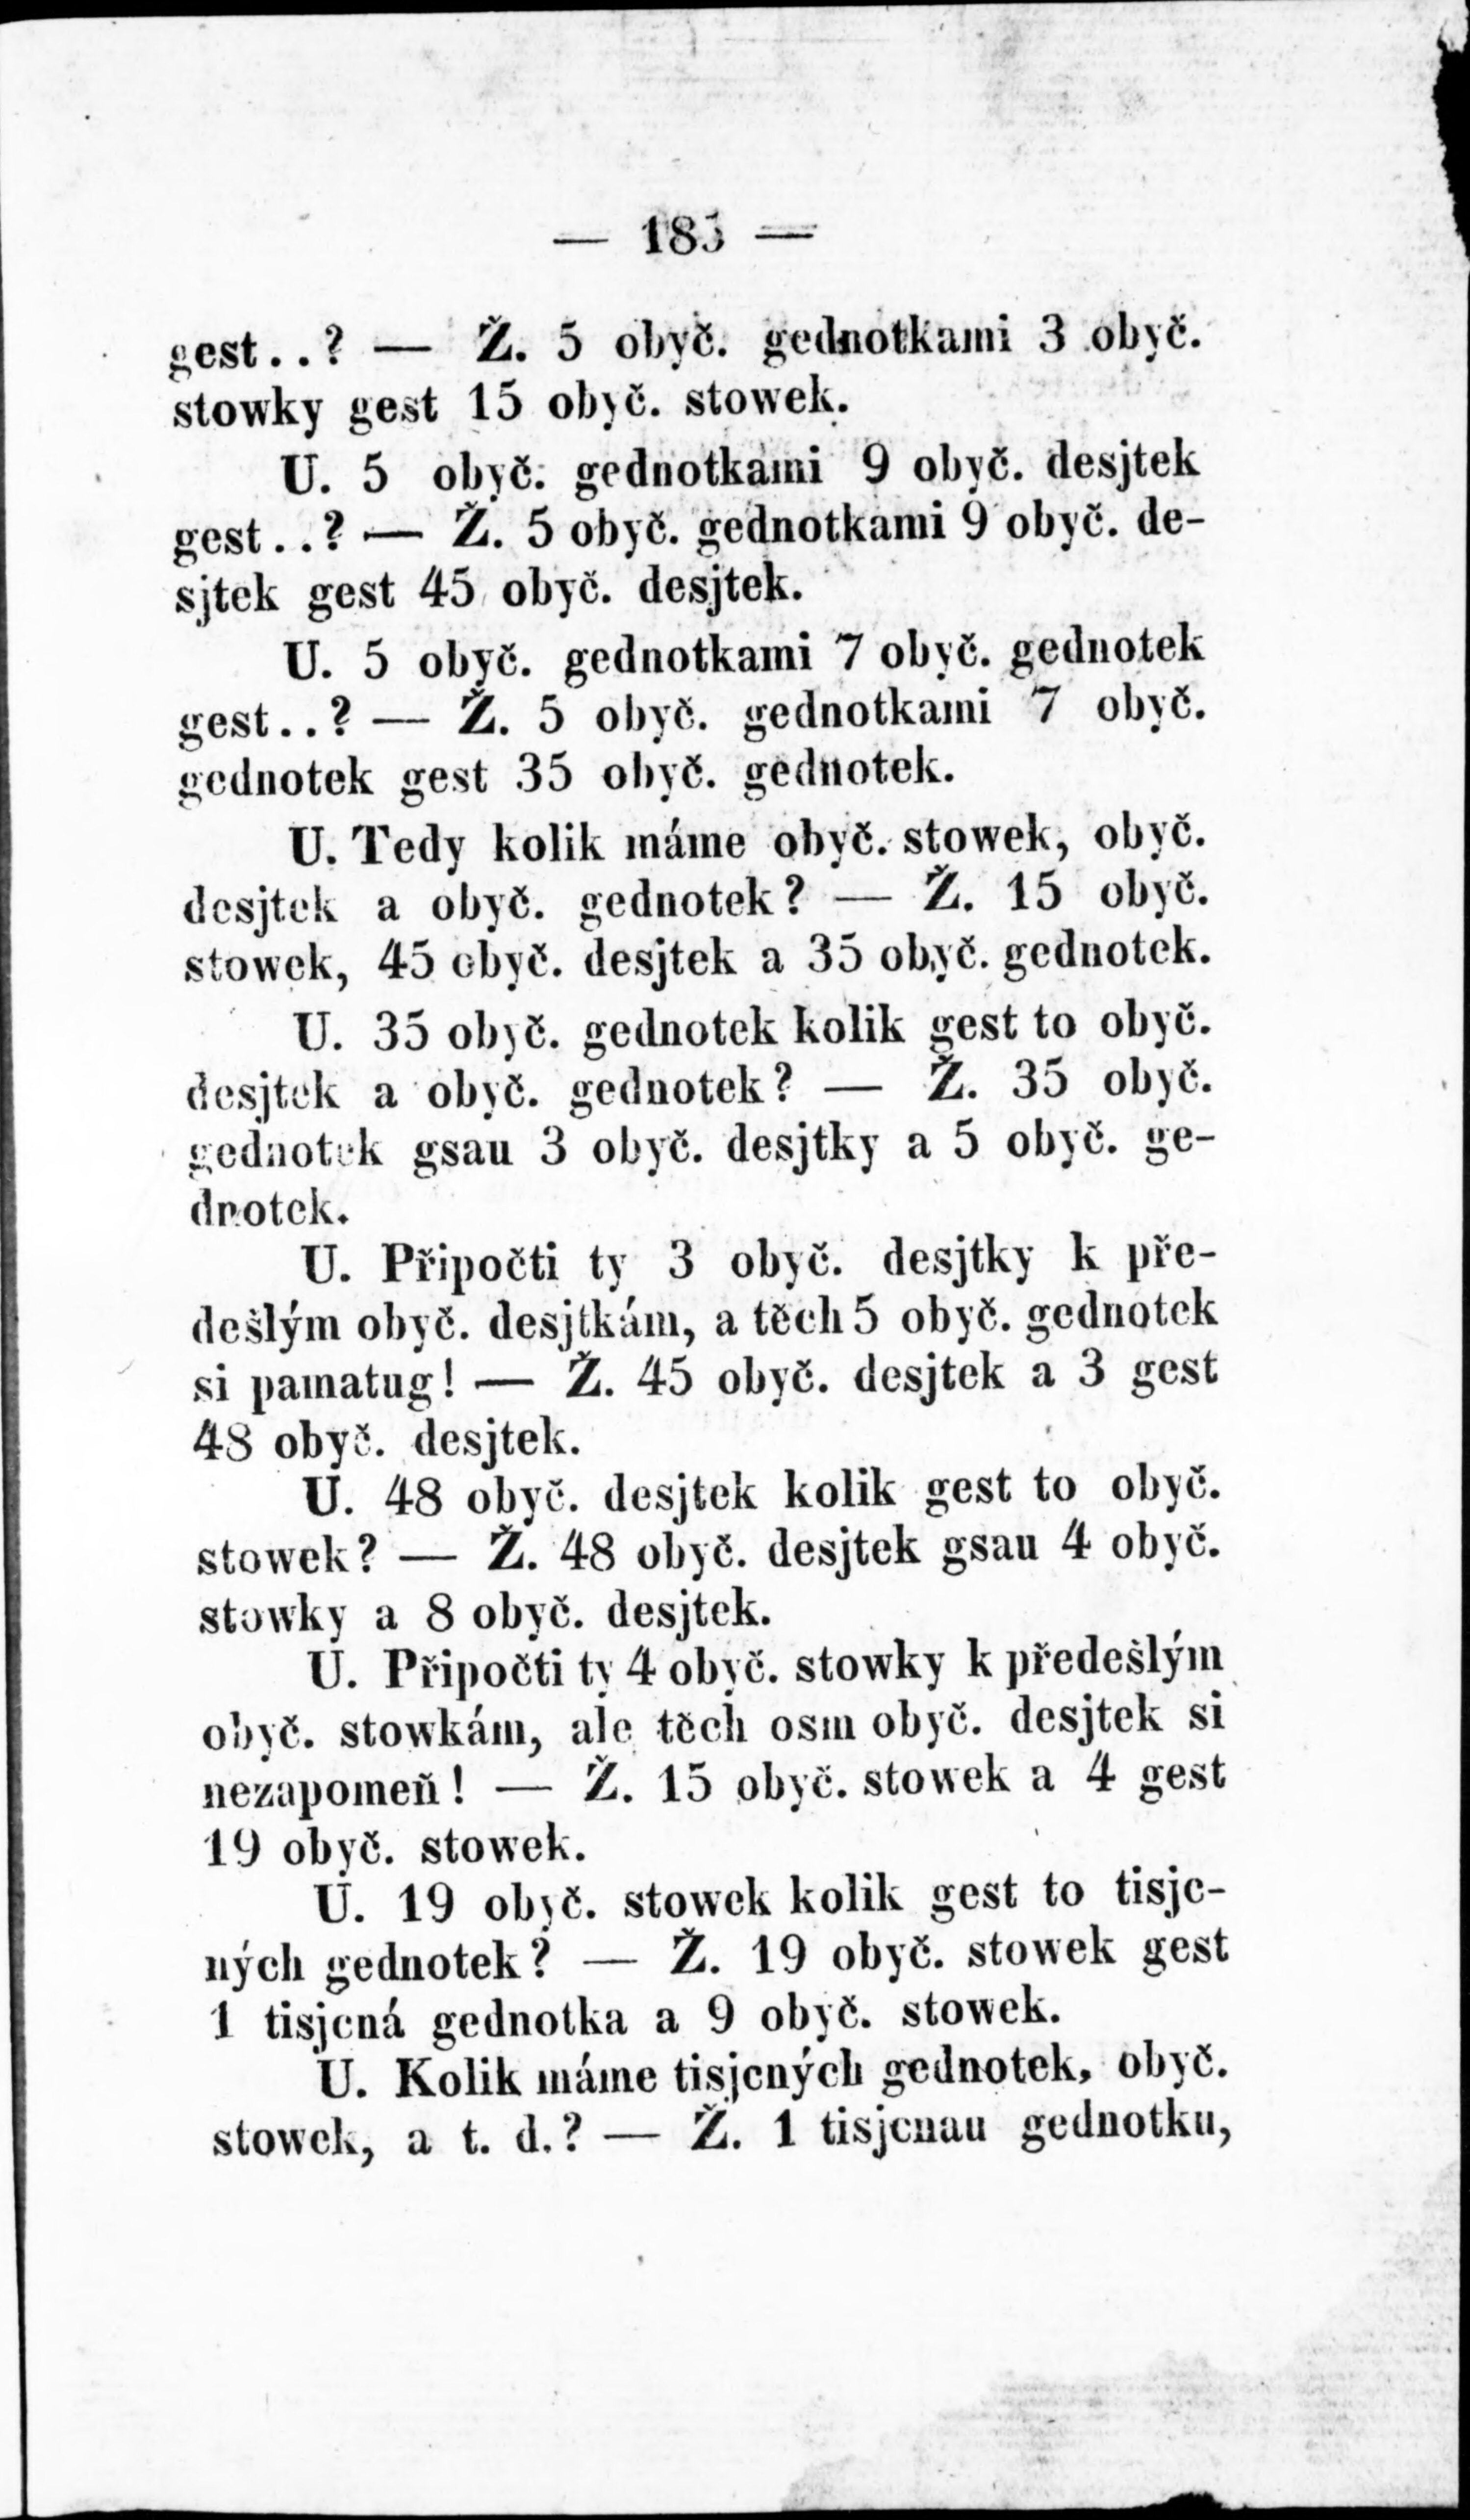 — 185 —
gest..? — Ž. 5 obyč. gednotkami 3 obyč.
stowky gest 15 obyč. stowek.
U. 5 obyč. gednotkami 9 obyč. desjtek
gest..? — Ž. 5 obyč. gednotkami 9 obyč. de-
sjtek gest 45 obyč. desjtek.
U. 5 obyč. gednotkami 7 obyč. gednotek
gest..? — Ž. 5 obyč. gednotkami 7 obyč.
gednotek gest 35 obyč. gednotek.
U. Tedy kolik máme obyč. stowek, obyč.
desjtek a obyč. gednotek? — Ž. 15 obyč.
stowek, 45 obyč. desjtek a 35 obyč. gednotek.
U. 35 obyč. gednotek kolik gest to obyč.
desjtek a obyč. gednotek? — Ž. 35 obyč.
gednotek gsau 3 obyč. desjtky a 5 obyč. ge-
dnotek.
U. Připočti ty 3 obyč. desjtky k pře-
dešlým obyč. desjtkám, a těch 5 obyč. gednotek
si pamatug! — Ž. 45 obyč. desjtek a 3 gest
48 obyč. desjtek.
U. 48 obyč. desjtek kolik gest to obyč.
stowek? — Ž. 48 obyč. desjtek gsau 4 obyč.
stowky a 8 obyč. desjtek.
U. Připočti ty 4 obyč. stowky k předešlým
obyč. stowkám, ale těch osm obyč. desjtek si
nezapomeň! — Ž. 15 obyč. stowek a 4 gest
19 obyč. stowek.
U. 19 obyč. stowek kolik gest to tisjc-
ných gednotek? — Ž. 19 obyč. stowek gest
1 tisjcná gednotka a 9 obyč. stowek.
U. Kolik máme tisjcných gednotek, obyč.
stowek, a t. d.? — Ž. 1 tisjcnau gednotku,